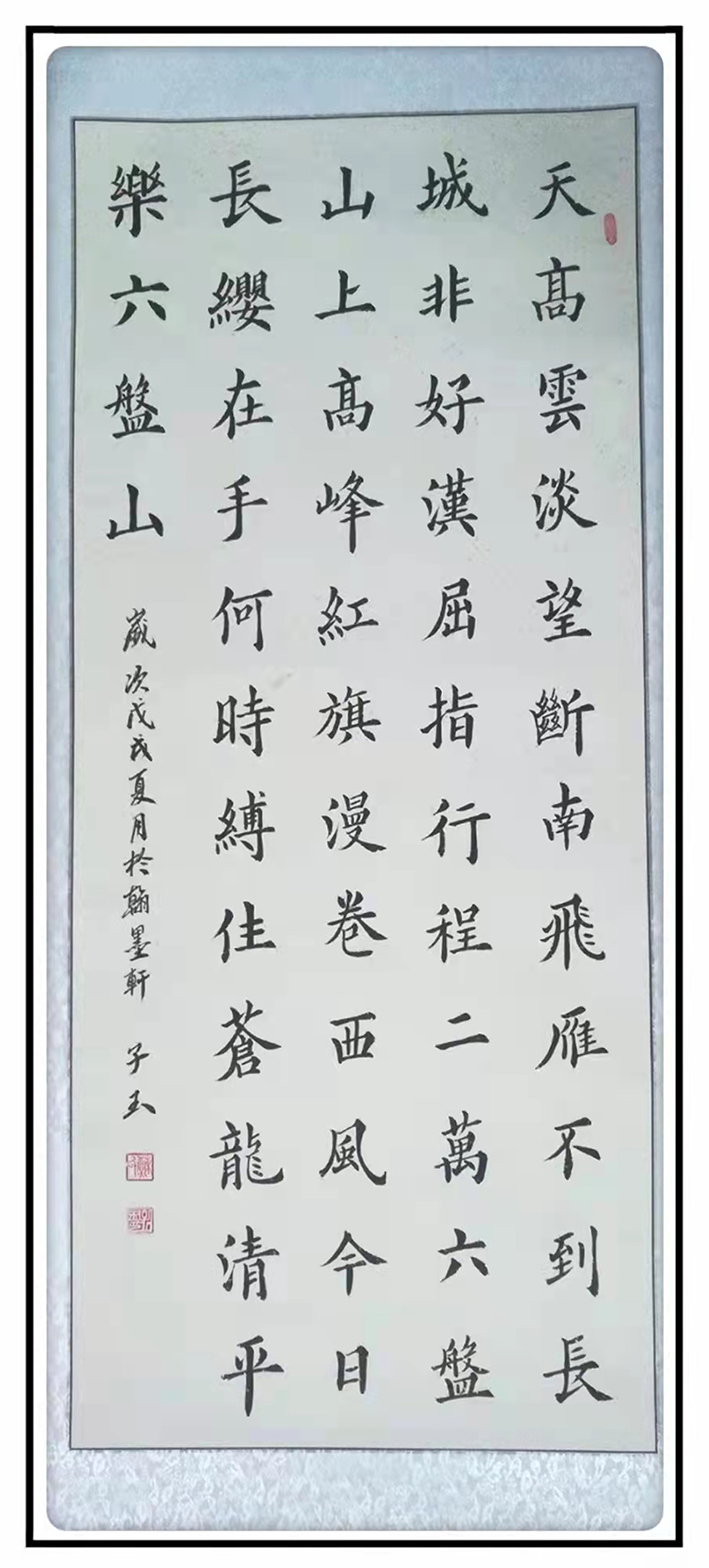 天髙雲淡望斷南飛雁不到長
城非好漢屈指行程二萬六盤
山上髙峰紅旗漫卷西風今日
長纓在手何時縛住蒼龍清平
樂六盤山
歲次戊戌夏月於翰墨軒 子玉